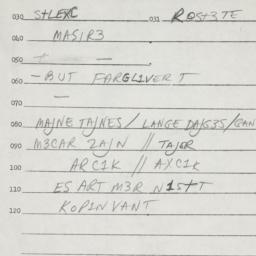 030 STLEXC 031 ROST3TE
040 MASIR3
050
060 - BUT FARGLIVERT
070 —
080 MAJNE TAJNES / LANGE DAJG3S /
090 M3CAR ZAJN // TAJGR
100 ARC1K // AXC1K
110 ES ART M3R N1STT
120 KOPINVANT